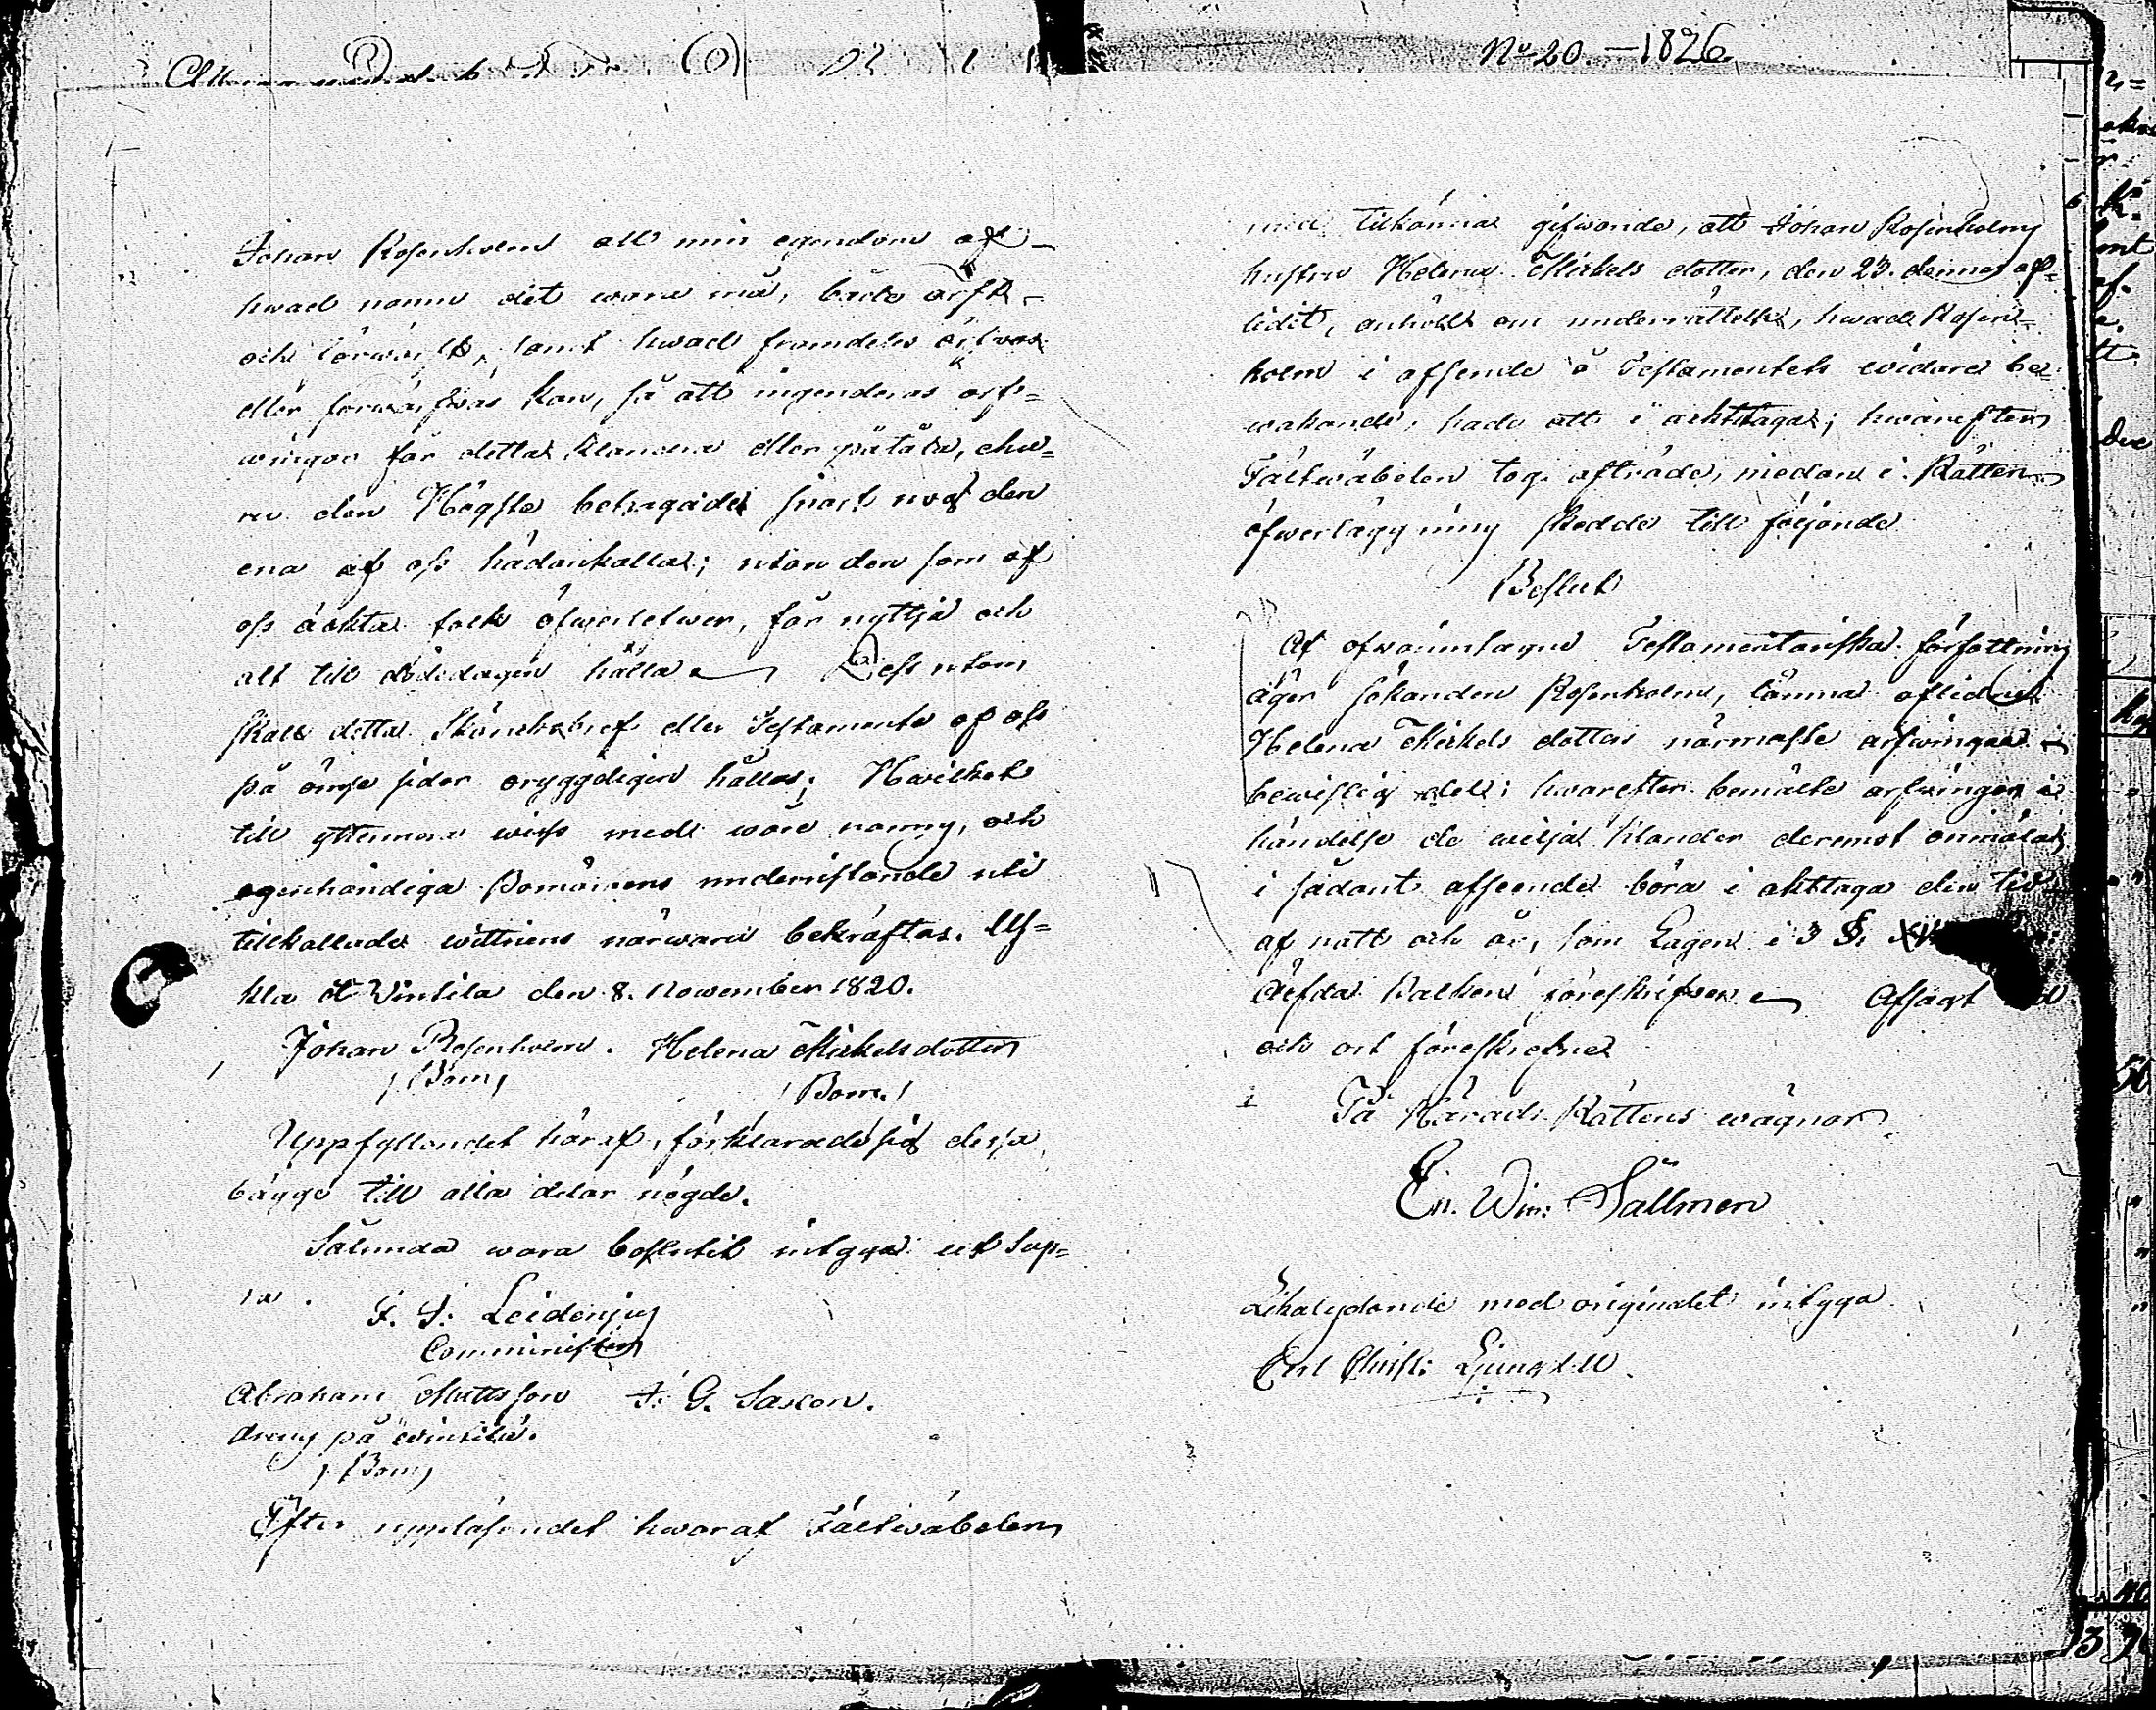 No 20. — 1826
Johan Rosenholm all min egendom af
hwad namn det wara må, både ärfd
och förwärfd, samt hwad framdeles ärfwas
eller förwärfwas kan, så att ingenderas arf=
wingar får detta klandra eller påtala, ehu=
ru den Högste behagade snart nog den
ena af oss hädankalla; utan den som af
oss äckta folk öfwerlefwer, får nyttja och
alt till dödedagen hålla Dessutom
skall detta Skänkebref eller Testamente af oss
på ömse sidor oryggeligen hållas; Hwilket
till yttermera wiss med wåre namn, och
egenhändiga Bomärkens understående uti
tillkallade wittnens närwaro bekräftas. Us=
kla Wintila den 8. November 1820.
Johan Rosenholm. Helena Mickelsdotter
/Bom/ /Bom./
Uppfyllandet häraf, förklarade sig dessa
bägge till alla delar nögde.
Sålunda wara beslutit intyga ut sup=
ra. F. F. Leidenius
Comminister
Abraham Mattsson F. G. Saxen.
dreng på Wintila.
/Bom/
Efter uppläsandet hwaraf Fältwäbelen
med tillkänna gifwande, att Johan Rosenholms
hustru Helena Mickels dotter, den 23. dennes af=
lidit, anhöll om underrättelse, hwad Rosen=
holm i afseende å Testamentets widare be=
wakande, hade att i akttaga; hwarefter
Fältwäbelen tog afträde, medan i Rätten
öfwerläggning skedde till följande
Beslut
Af ofwanintagne Testamentariska författning
äger sökanden Rosenholm, lämna aflidne
Helena Mickels dotters närmaste arfwingar
bewislig del; hwarefter bemälte arfwingar i
händelse de wilja klander deremot anmäla,
i sådant afseende böra i akttaga den tid
af natt och år, som Lagen i 3 §.
Ärfda Balken föreskrifwer Afsagt
och ort föreskrefne
På Härads Rättens wägnar
Er. Wm: Sallmen
Likalydande med originalet intyga
Carl Christ: Ljungdell.